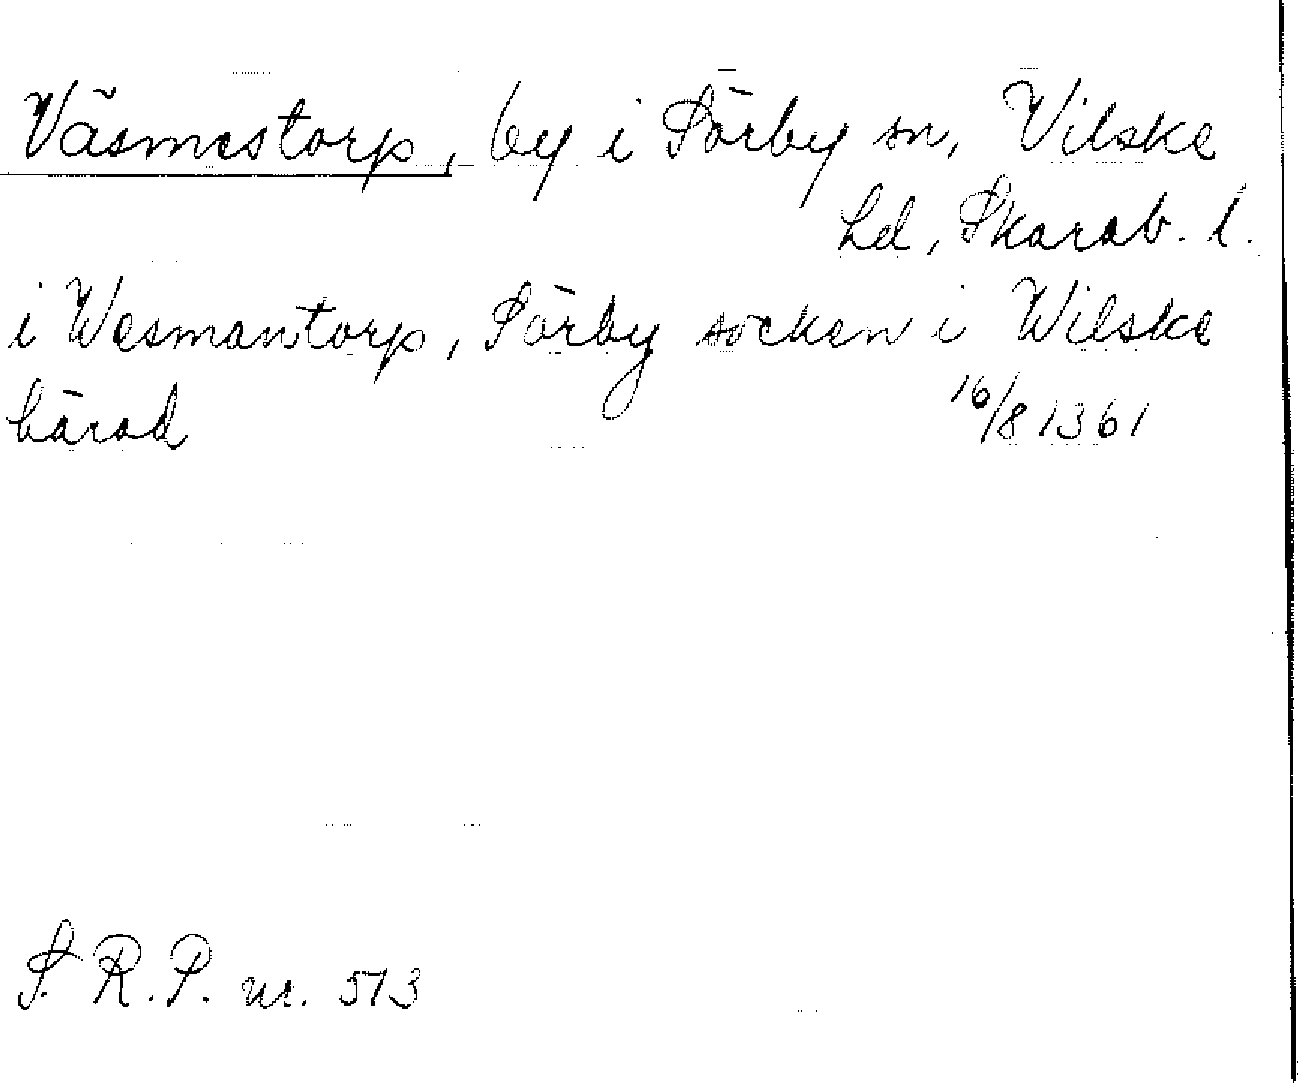 Väsmestorp, by i Sörby sn, Vilske
hd, Skarab. l.
i Wesmantorp, Sörby socken i Wilske
härad 16/8 1361
S.R.P. nr. 513